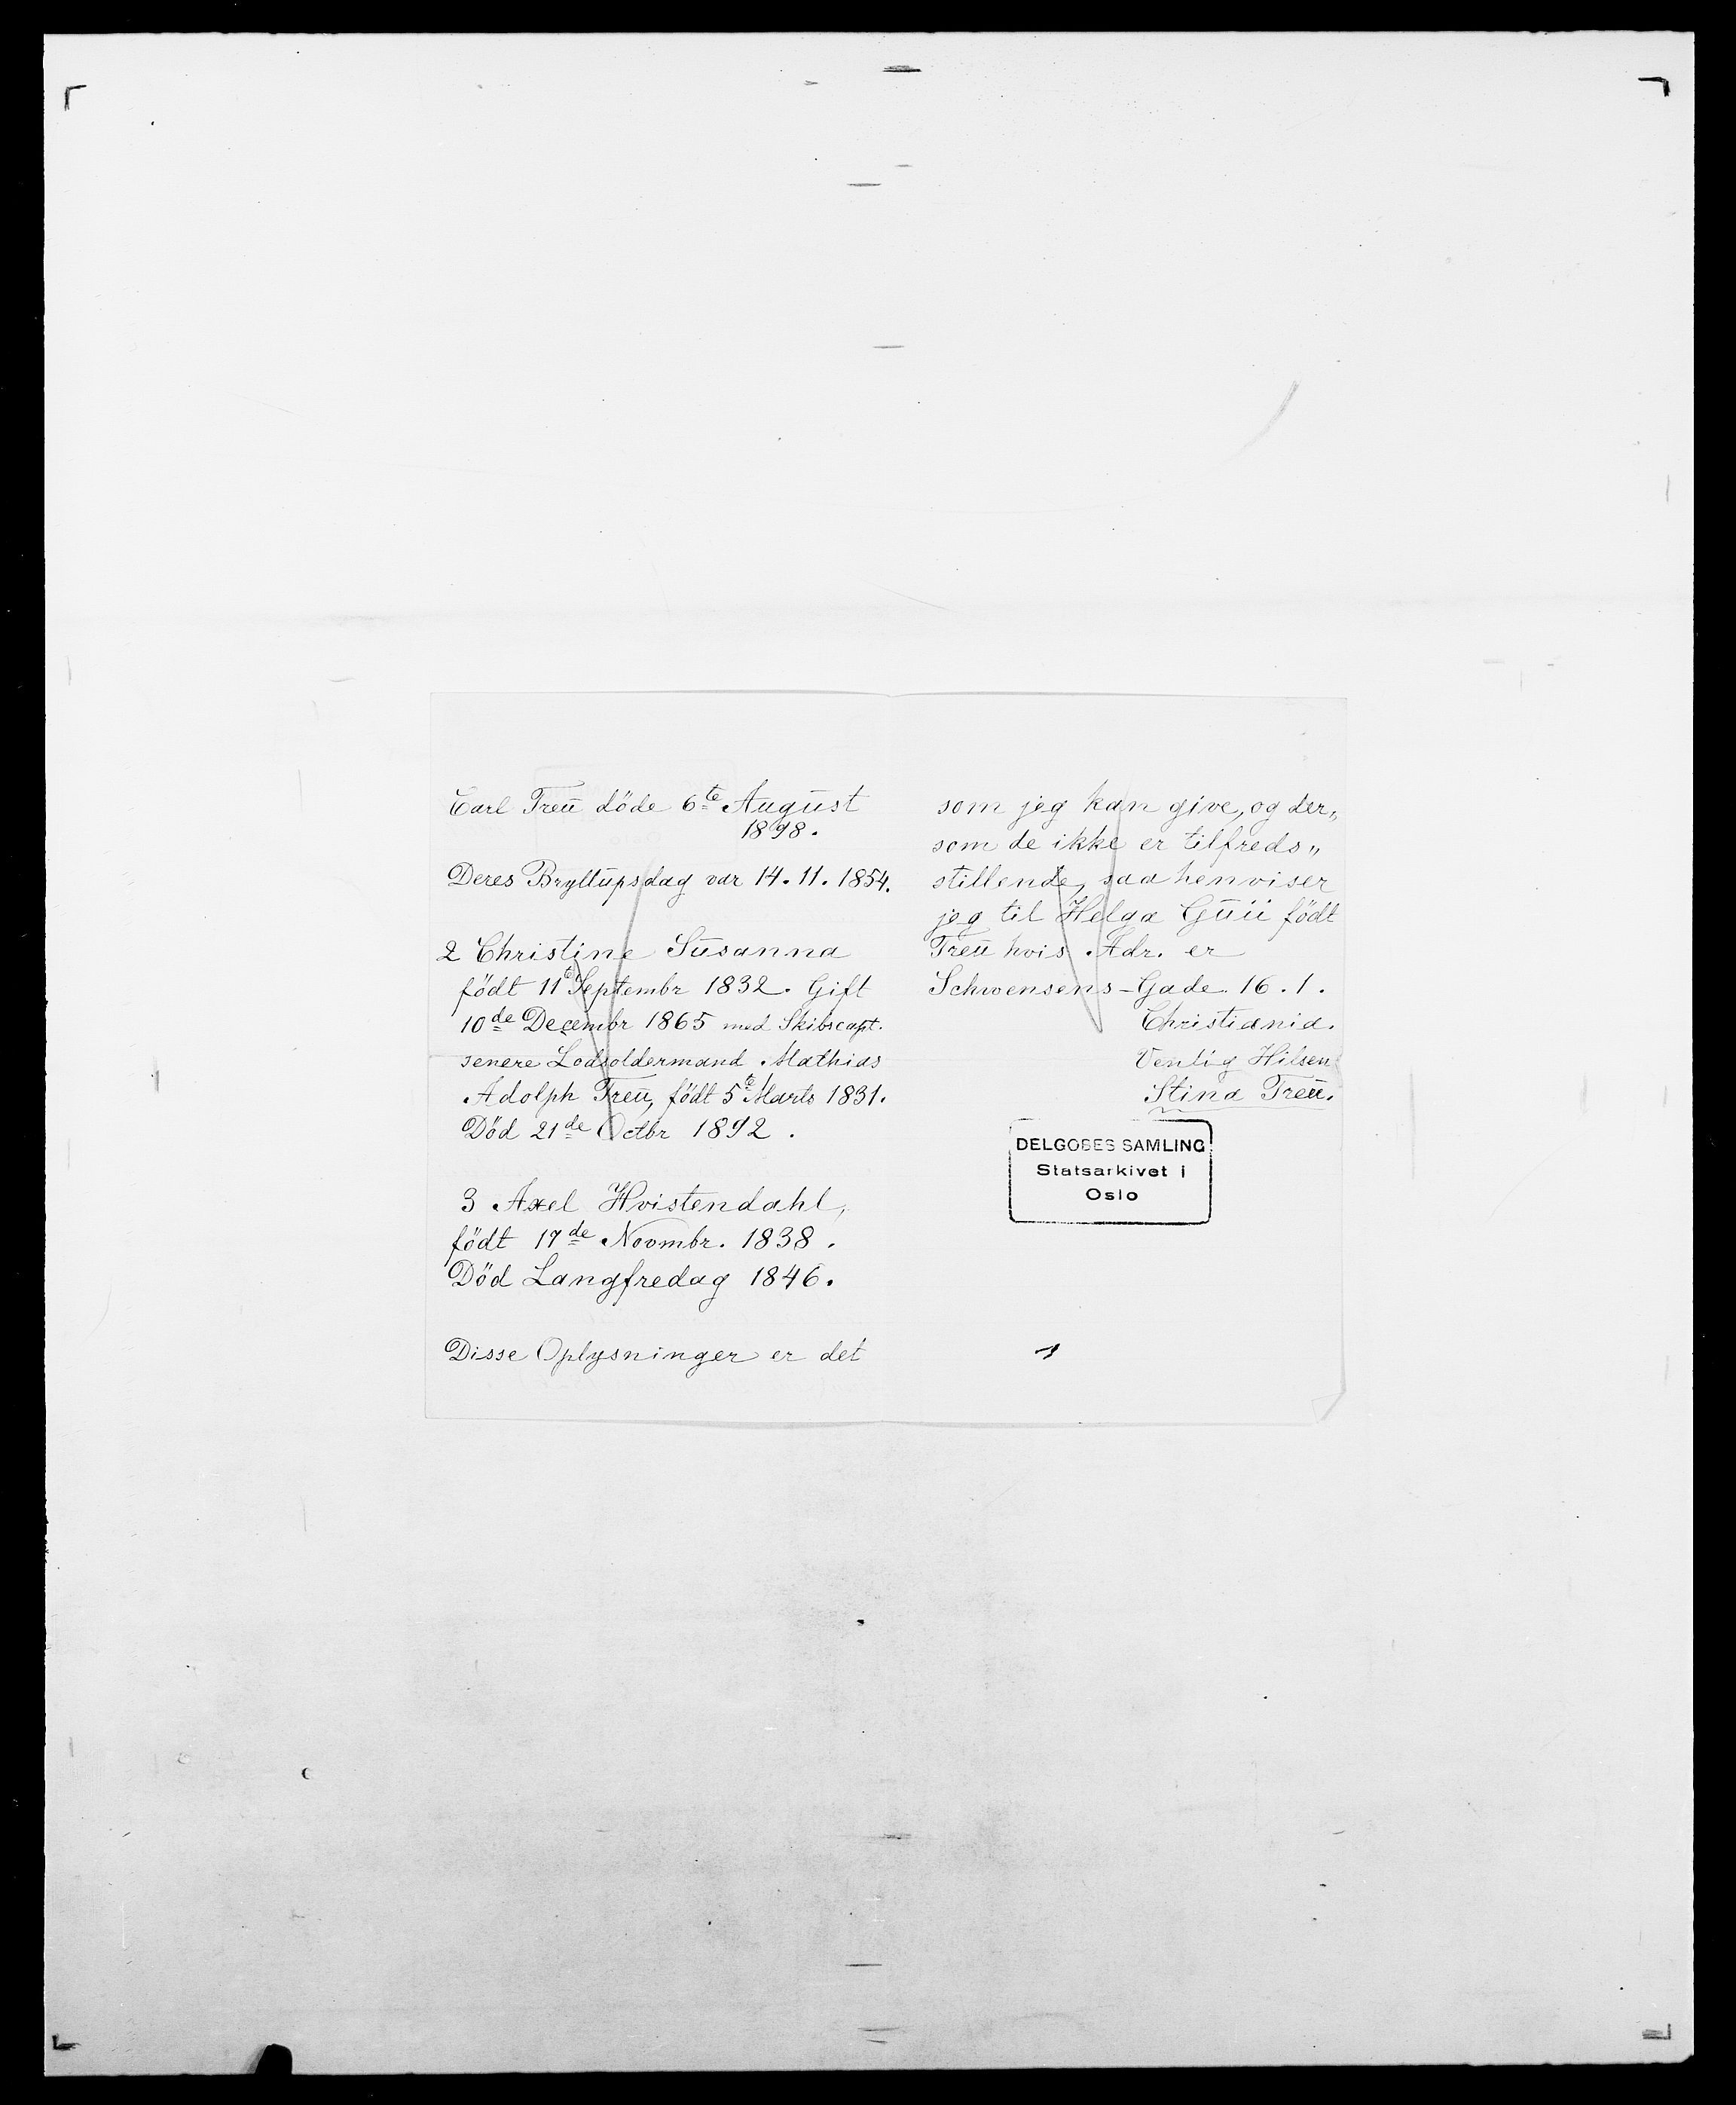 Carl Treü döde 6te August
1898.
Deres Bryllüpsdag var 14.11.1854.
2 Christine Süsanna
födt 11te Septembr 1832. Gift
10de Decembr 1865 med Skibscapt.
senere Lodsoldermand Mathias
Adolph Treü, födt 5te Marts 1831.
Död 21de Octbr 1892.
3 Axel Hvistendahl,
födt 17de Novmbr. 1838.
Död Langfredag 1846.
Disse Oplysninger er det
som jeg kan give, og der„
som de ikke er tilfreds„
stillende, saa henviser
jeg til Helga født
Treü hvis Adr. er
Schwensens-Gade 16.1.
Christiania.
Venlig Hilsen
Stina Treü.
DELGOBES SAMLING
Statsarkivet i
Oslo